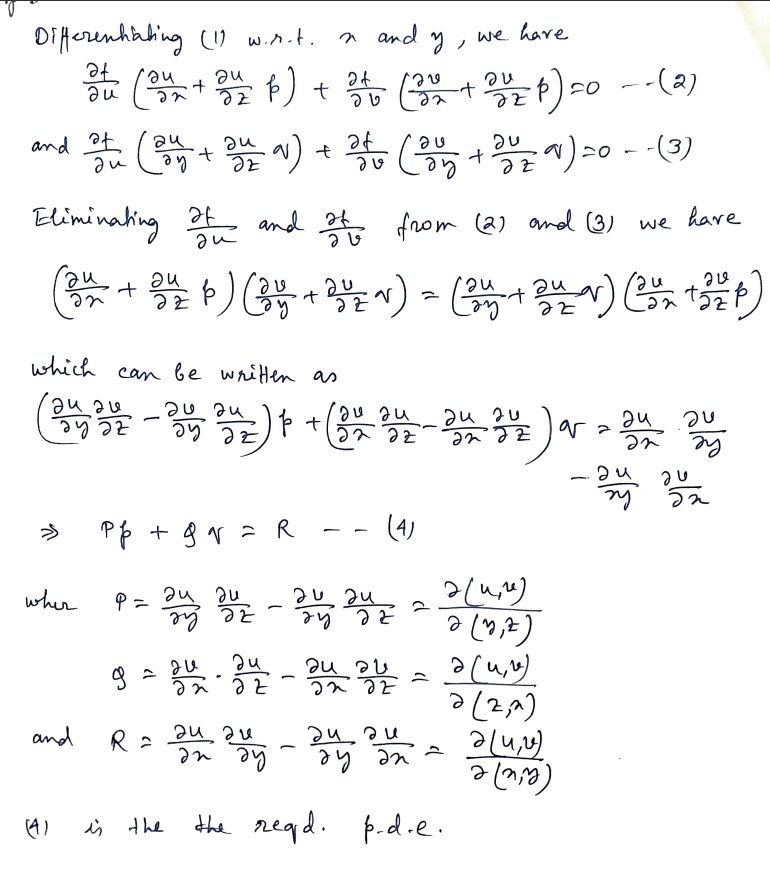 Differentiating (1) w.r.t. x and y, we have
∂f/∂u (∂u/∂x + ∂u/∂z p) + ∂f/∂v (∂v/∂x + ∂v/∂z p) = 0 --(2)
and ∂f/∂u (∂u/∂y + ∂u/∂z q) + ∂f/∂v (∂v/∂y + ∂v/∂z q) = 0 --(3)
Eliminating ∂f/∂u and ∂f/∂v from (2) and (3) we have
(∂u/∂x + ∂u/∂z p) (∂v/∂y + ∂v/∂z q) = (∂u/∂y + ∂u/∂z q) (∂v/∂x + ∂v/∂z p)
which can be written as
(∂u/∂y ∂v/∂z - ∂v/∂y ∂u/∂z) p + (∂v/∂x ∂u/∂z - ∂u/∂x ∂v/∂z) q = ∂u/∂x . ∂v/∂y
- ∂u/∂y ∂v/∂x
⇒ Pp + Qq = R -- (4)
wher P = ∂u/∂y ∂v/∂z - ∂v/∂y ∂u/∂z = ∂(u,v)/∂(y,z)
Q = ∂v/∂x . ∂u/∂z - ∂u/∂x ∂v/∂z = ∂(u,v)/∂(z,x)
and R = ∂u/∂x ∂v/∂y - ∂u/∂y ∂v/∂x = ∂(u,v)/∂(x,y)
(4) is the the reqd. p.d.e.